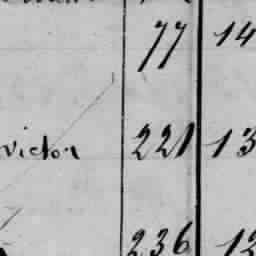 77 14
victor 221 13
236 12